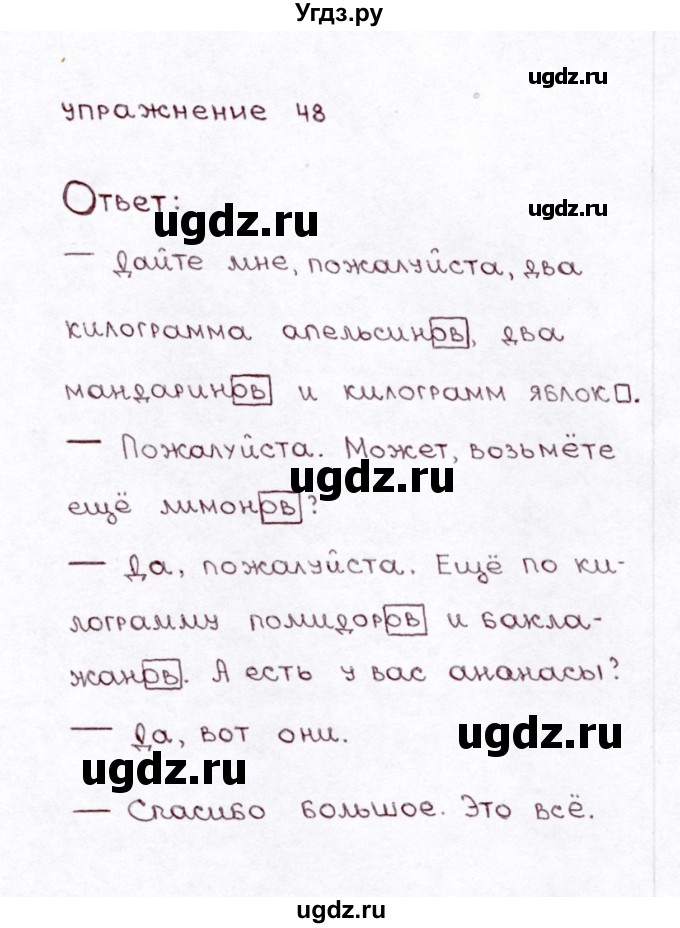 Угдз.ру
ugdz.ru
упражнение 48
Ответ:
ugdz.ru
ugdz.ru
— Дайте мне, пожалуйста, два
килограмма апельсинов, два
мандаринов и килограмм яблок▯.
— Пожалуйста. Может, возьмёте
ugdz.ru
ещё лимонов?
— Да, пожалуйста. Ещё по ки-
лограмму помидоров и бакла-
жанов. А есть у вас ананасы?
— Да, вот они.
ugdz.ru
ugdz.ru
— Спасибо большое. Это всё.
ugdz.ru